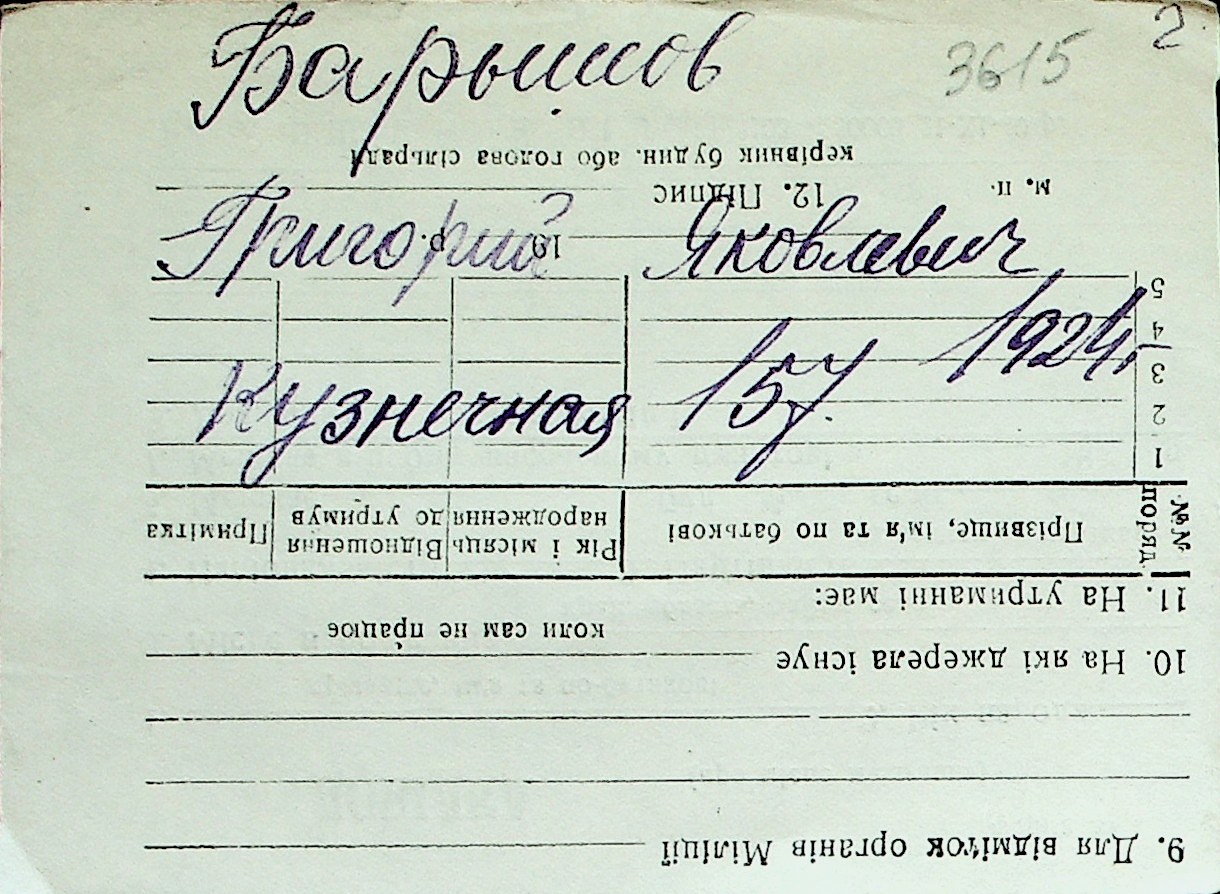 2
3615
Барышов
Григорий Яковлевич
1924
Кузнечная 157.
9. Для відміток органів Міліції
10. На які джерела існує
коли сам не працює
11. На утриманні має:
№№ поряд
Прізвище, ім'я та по батькові
Рік і місяць народження
Відношення до утримув
Примітка
1
2
3
4
5
19 р.
м. п.
12. Підпис
керівник будин. або голова сільради